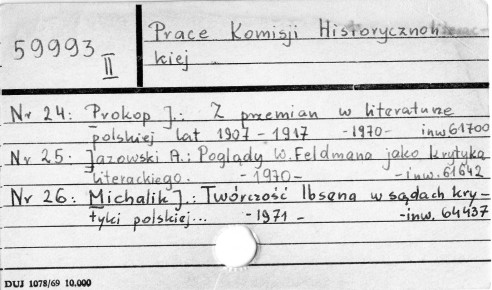 59993 II
Prace Komisji Historycznoli
kiej
Nr 24: Prokop J.: Z przemian w literaturze
polskiej lat 1907 - 1917 - 1970 - inw 61700
Nr 25: Jazowski A.: Poglądy W. Feldmana jako krytyka
literackiego. - 1970 - - inw. 61642
Nr 26: Michalik J.: Twórczość Ibsena w sądach kry-
tyki polskiej... - 1971 - - inw. 64437
DUJ 1078/69 10.000